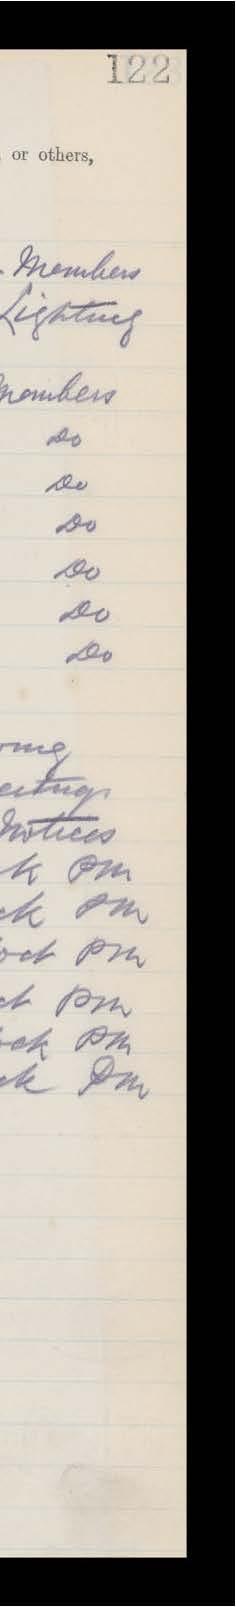 122
or others,
Members
Lighting
Members
Do
Do
Do
Do
Do
Do
Notices
k Pm
ck Pm
ock Pm
ck Pm
ock Pm
ck Pm